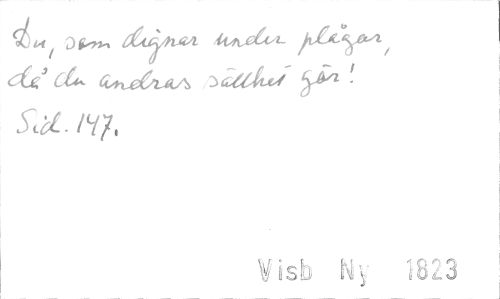 Du, som dignar under plågar,
då du andras sällhet gör!
Sid. 147.
Visb Ny 1823